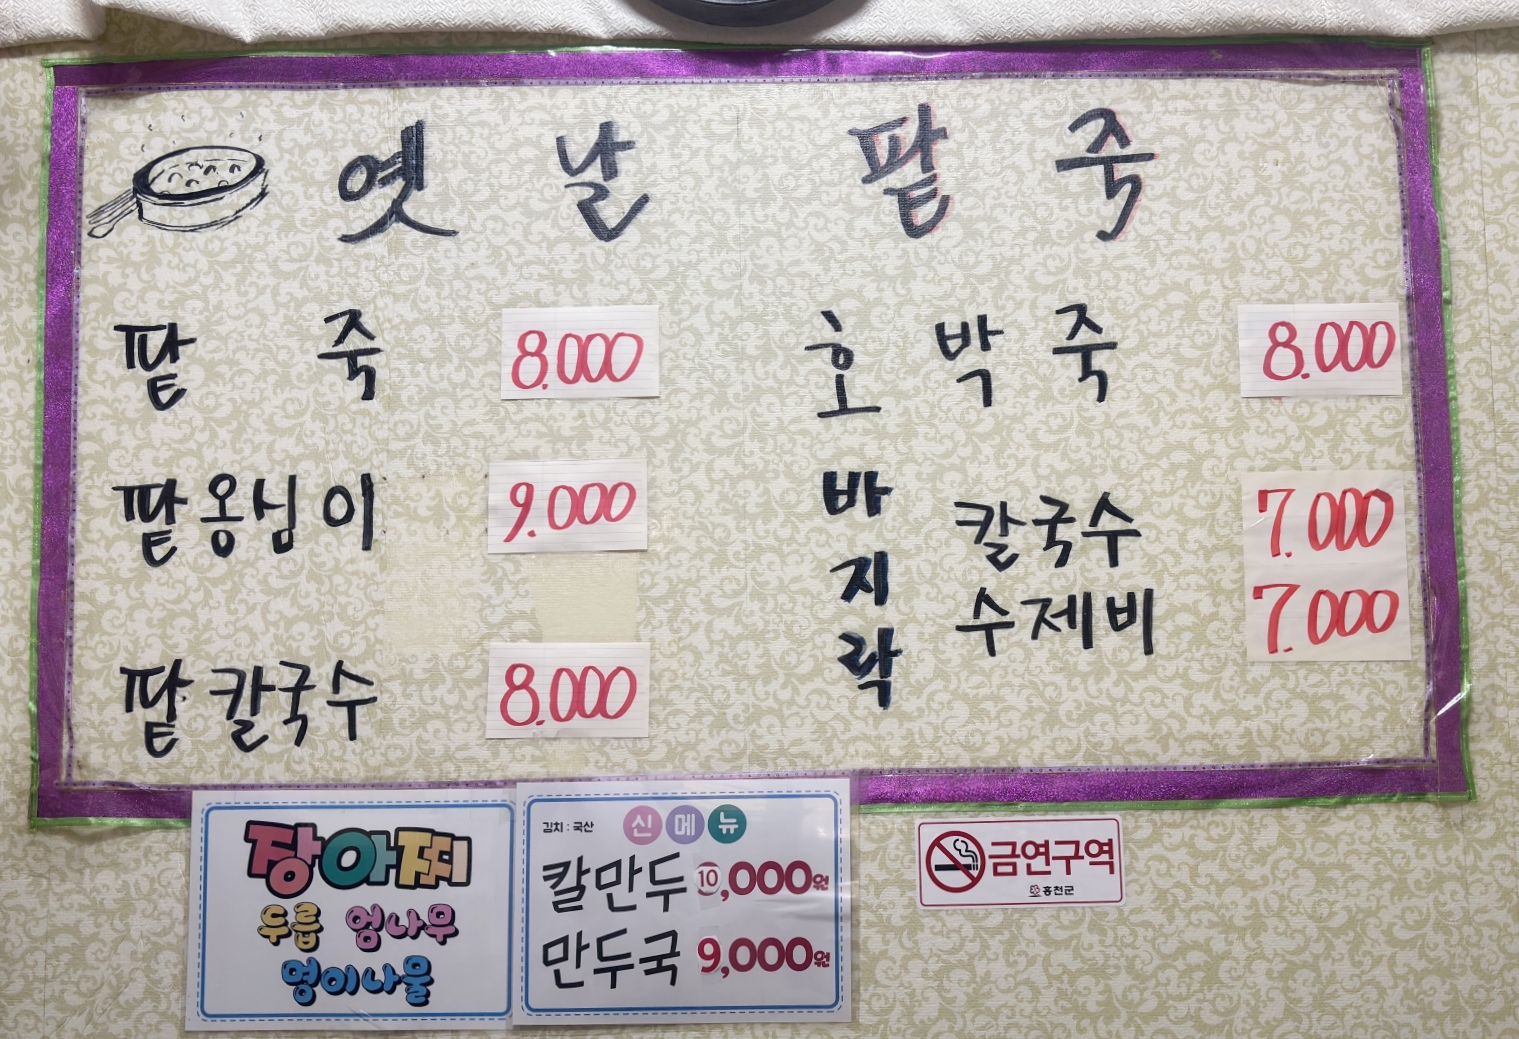 옛날 팥죽
팥죽 8.000
팥옹심이 9.000
팥칼국수 8.000
호박죽 8.000
바지락
칼국수 7.000
수제비 7.000
장아찌
두릅 엄나무
명이나물
김치 : 국산 신메뉴
칼만두 10,000원
만두국 9,000원
금연구역
홍천군